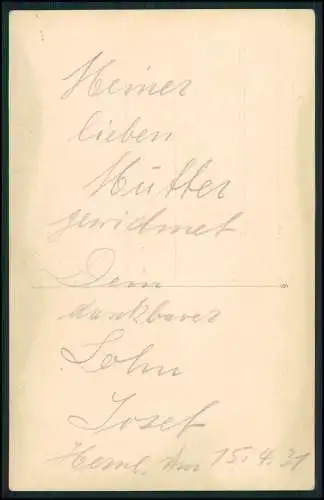 Meiner
lieben
Mutter
gewidmet
Dein
dankbarer
Sohn
Josef
den 15.4.31